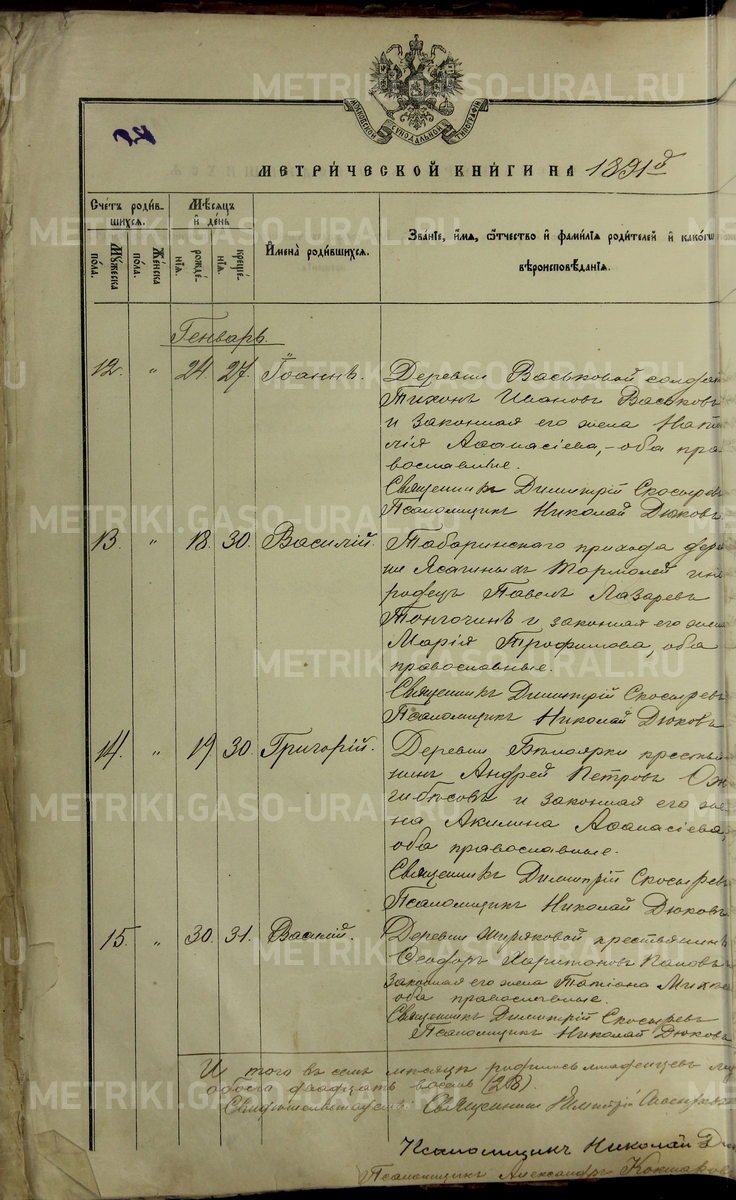 МОСКОВСКОЙ СѴНОДАЛЬНОЙ ТИПОГРАФІИ
МЕТРИ́ЧЕСКОЙ КНИ́ГИ НА 1891 й
Сче́тъ роди́в-
шихся.
Мѣсяцъ
и҆ де́нь
Имена̀ роди́вшихся.
Зва́нїе, и҆́мя, ѻ҆́тчество и҆ фами́лїя роди́телей и҆ како́гѡ
вѣроисповѣ́данїя.
Му́жеска
по́ла.
Же́нска
по́ла.
рожде́-
нїя.
креще́-
нїя.
Генварь.
12. " 24. 27. Іоаннъ. Деревни Васьковой солдат
Тихонъ Ивановъ Васьковъ
и законная его жена Ната
лія Аѳанасіева, - оба пра
вославные.
Священникъ Димитрій Скосыревъ
Псаломщикъ Николай Дюковъ
13. " 18. 30. Василій. Табаринскаго прихода дерев
ни Ясачныхъ инo
родецъ Павелъ Лазаревъ
и законная его жена
Марія Трофимова, оба
православные.
Священникъ Димитрій Скосыревъ
Псаломщикъ Николай Дюковъ
14. " 19. 30. Григорій. Деревни Бѣлоярки крестья
нинъ Андрей Петровъ Ож
гибѣсовъ и законная его же
на Акилина Аѳанасіева,
оба православные.
Священникъ Димитрій Скосыревъ
Псаломщикъ Николай Дюковъ
15. " 30. 31. Василій. Деревни Жиряковой крестьянинъ
Ѳеодоръ Харитоновъ Поповъ
Законная его жена Татіана
оба православные.
Священникъ Димитрій Скосыревъ
Псаломщикъ Николай Дюковъ
И того въ семъ мѣсяцѣ родилось младенцевъ
обоего двадцать восемь (28).
Свидѣтельствуетъ: Священникъ Димитрій Скосырев
Псаломщикъ Николай
Псаломщикъ Александръ Кокшаров
METRIKI.GASO-URAL.RU